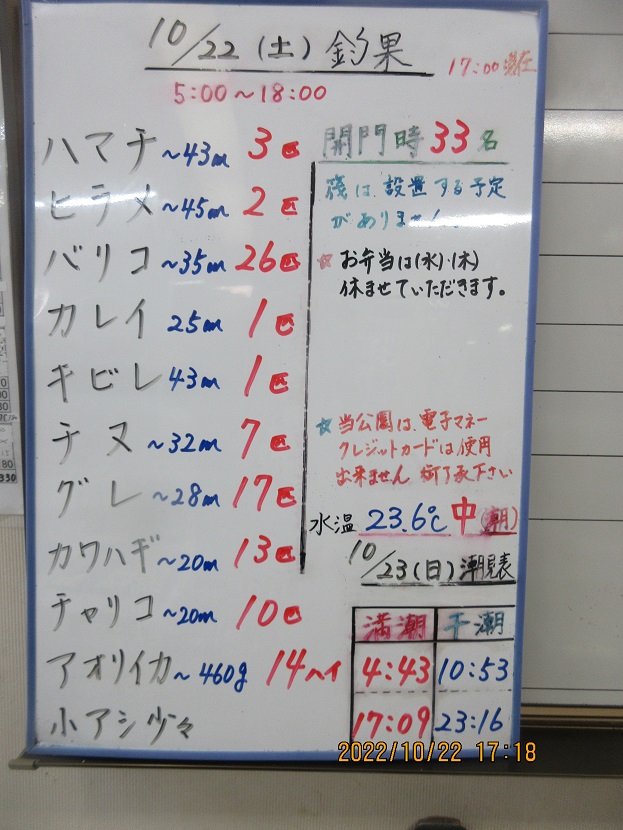 10/22(土)釣果
17:00現在
5:00～18:00
ハマチ ～43cm 3匹
ヒラメ ～45cm 2匹
バリコ ～35cm 26匹
カレイ 25cm 1匹
キビレ 43cm 1匹
チヌ ～32cm 7匹
グレ ～28cm 17匹
カワハギ ～20cm 13匹
チャリコ ～20cm 10匹
アオリイカ ～460g 14ハイ
小アジ少々
開門時33名
筏は、設置する予定
がありません。
☆ お弁当は(水)・(木)
休ませていただきます。
☆ 当公園は、電子マネー
クレジットカードは使用
出来ません 御了承下さい
水温 23.6℃ 中(潮)
10/23(日)潮見表
満潮 干潮
4:43 10:53
17:09 23:16
2022/10/22 17:18